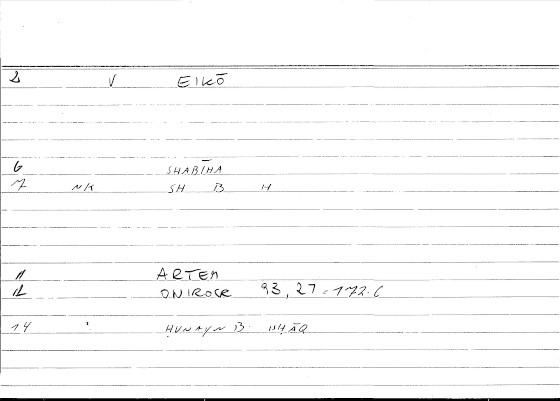 2 V EIKŌ
6 SHABĪHA
7 NK SH B H
11 ARTEM
12 ONIROCR 93,27 = 172.6
14 ḤUNAYN B. ISḤĀQ